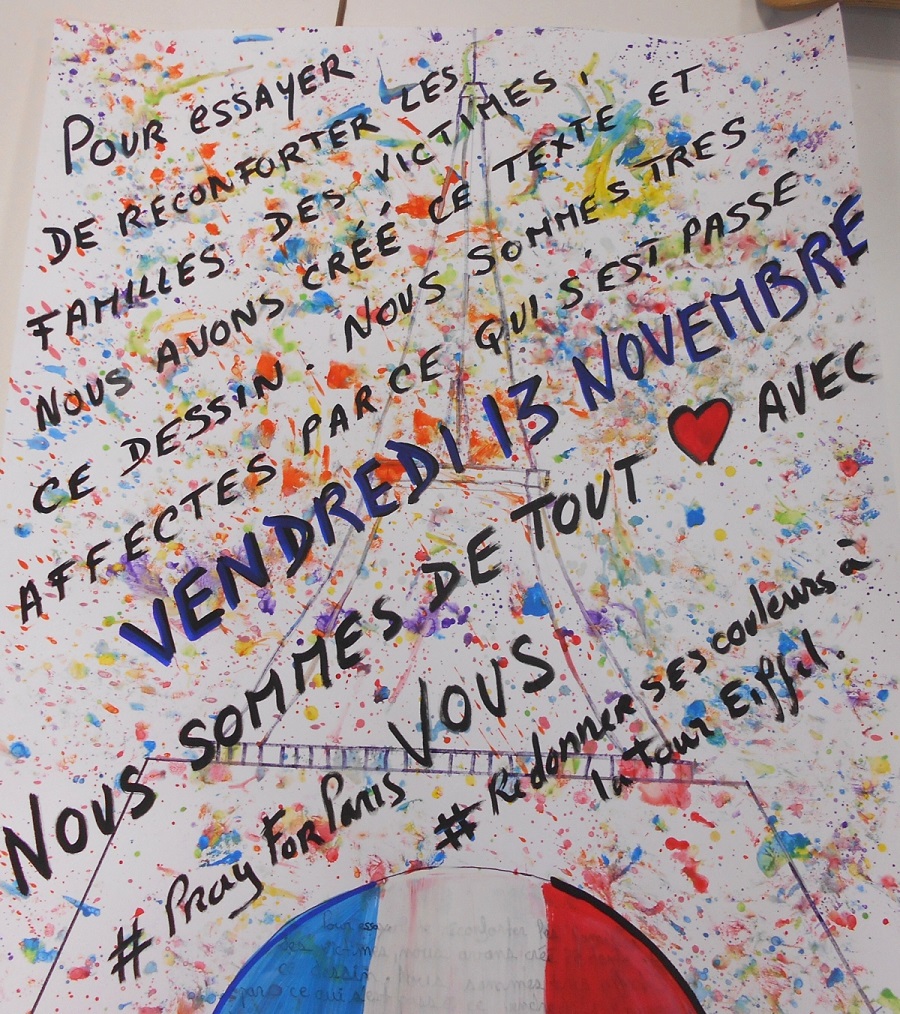 POUR ESSAYER
DE RECONFORTER LES
FAMILLES DES VICTIMES,
NOUS AVONS CRÉÉ CE TEXTE ET
CE DESSIN. NOUS SOMMES TRES
AFFECTES PAR CE QUI S'EST PASSE.
VENDREDI 13 NOVEMBRE
NOUS SOMMES DE TOUT ♥ AVEC
VOUS
# Pray For Paris
# Redonner ses couleurs à
la tour Eiffel.
Pour
des victimes nous avons
dessin. sommes
par ce qui